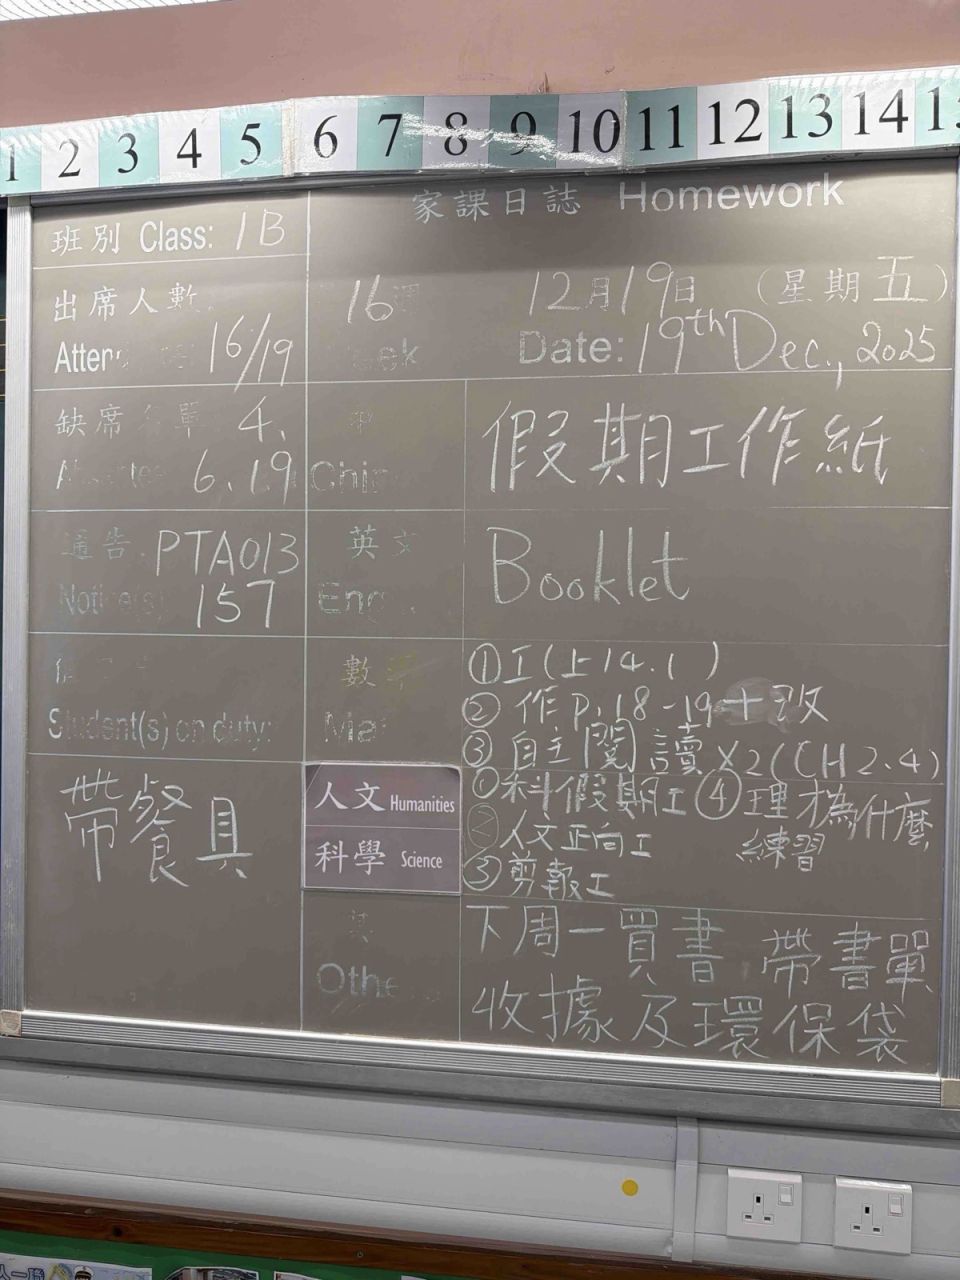 1 2 3 4 5 6 7 8 9 10 11 12 13 14
家課日誌 Homework
班別 Class: 1B
出席人數
16/19
16
12月19日 (星期五)
Date: 19th Dec., 2025
缺席名單 4、
6、19
假期工作紙
通告 PTA013
157
英文
Booklet
Student(s) on duty:
數
①工(上14.1)
②作P.18-19+改
③自主閱讀x2(CH2.4)
帶餐具
人文 Humanities
科學 Science
①科假期工 ④理才為什麼
練習
②人文正向工
③剪報工
下周一買書 帶書單
收據及環保袋